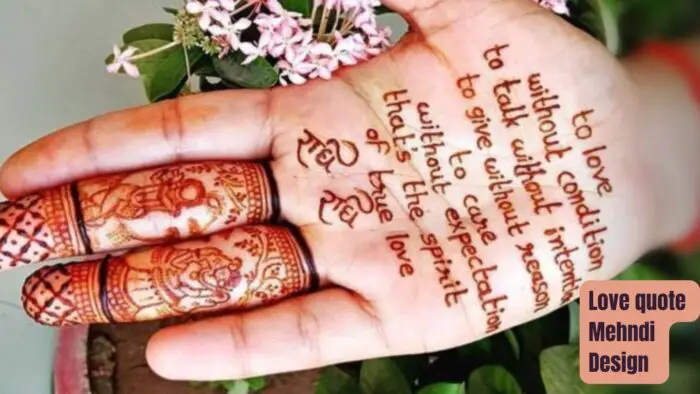 to love
without condition
to talk without intenti
to give without reason
to care
without expectation
that's the spirit
of true love
Love quote
Mehndi
Design